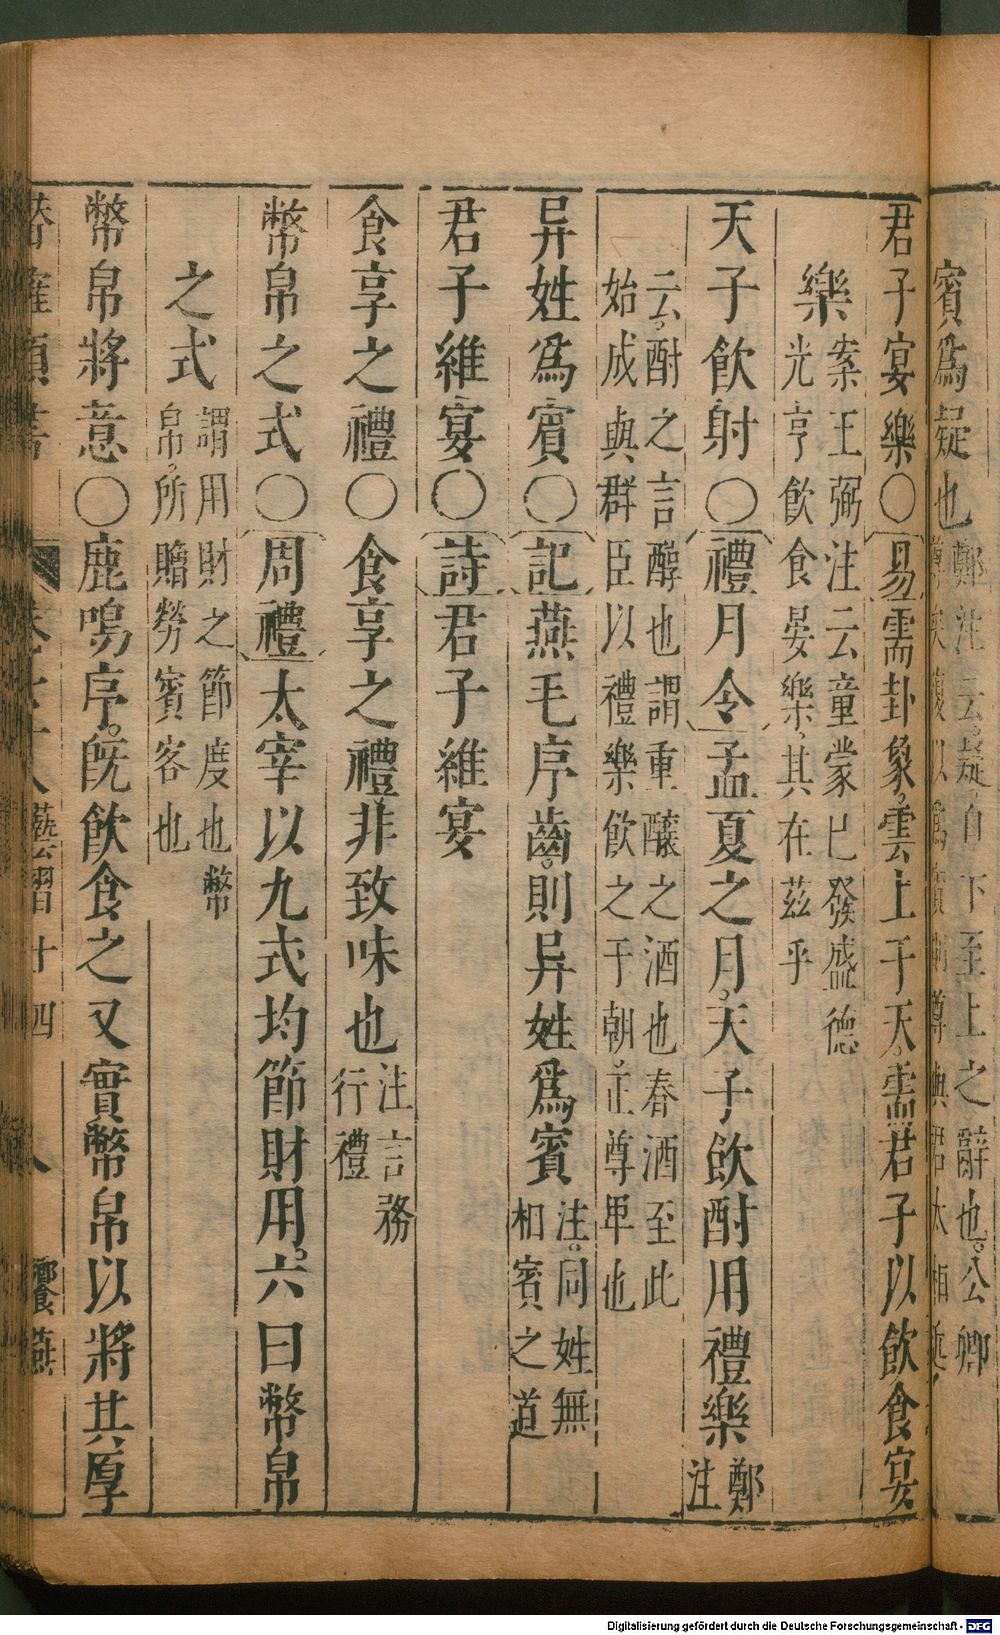 賓爲疑也鄭注云疑自下至上之辭也公卿
君子宴樂〇易需卦象雲上于天需君子以飲食宴
樂案王弼注云童蒙已發盛德光亨飲食宴樂其在茲乎
天子飲射〇禮月令孟夏之月天子飲酎用禮樂鄭注
云酎之言醇也謂重釀之酒也春酒至此始成與群臣以禮樂飲之于朝正尊卑也
异姓爲賓〇記燕毛序齒則异姓爲賓注同姓無相賓之道
君子維宴〇詩君子維宴
食享之禮〇食享之禮非致味也注言務行禮
幣帛之式〇周禮太宰以九式均節財用六曰幣帛
之式謂用財之節度也幣帛所贈勞賓客也
幣帛將意〇鹿鳴序旣飲食之又實幣帛以將其厚
十四
饗燕
Digitalisierung gefördert durch die Deutsche Forschungsgemeinschaft - DFG